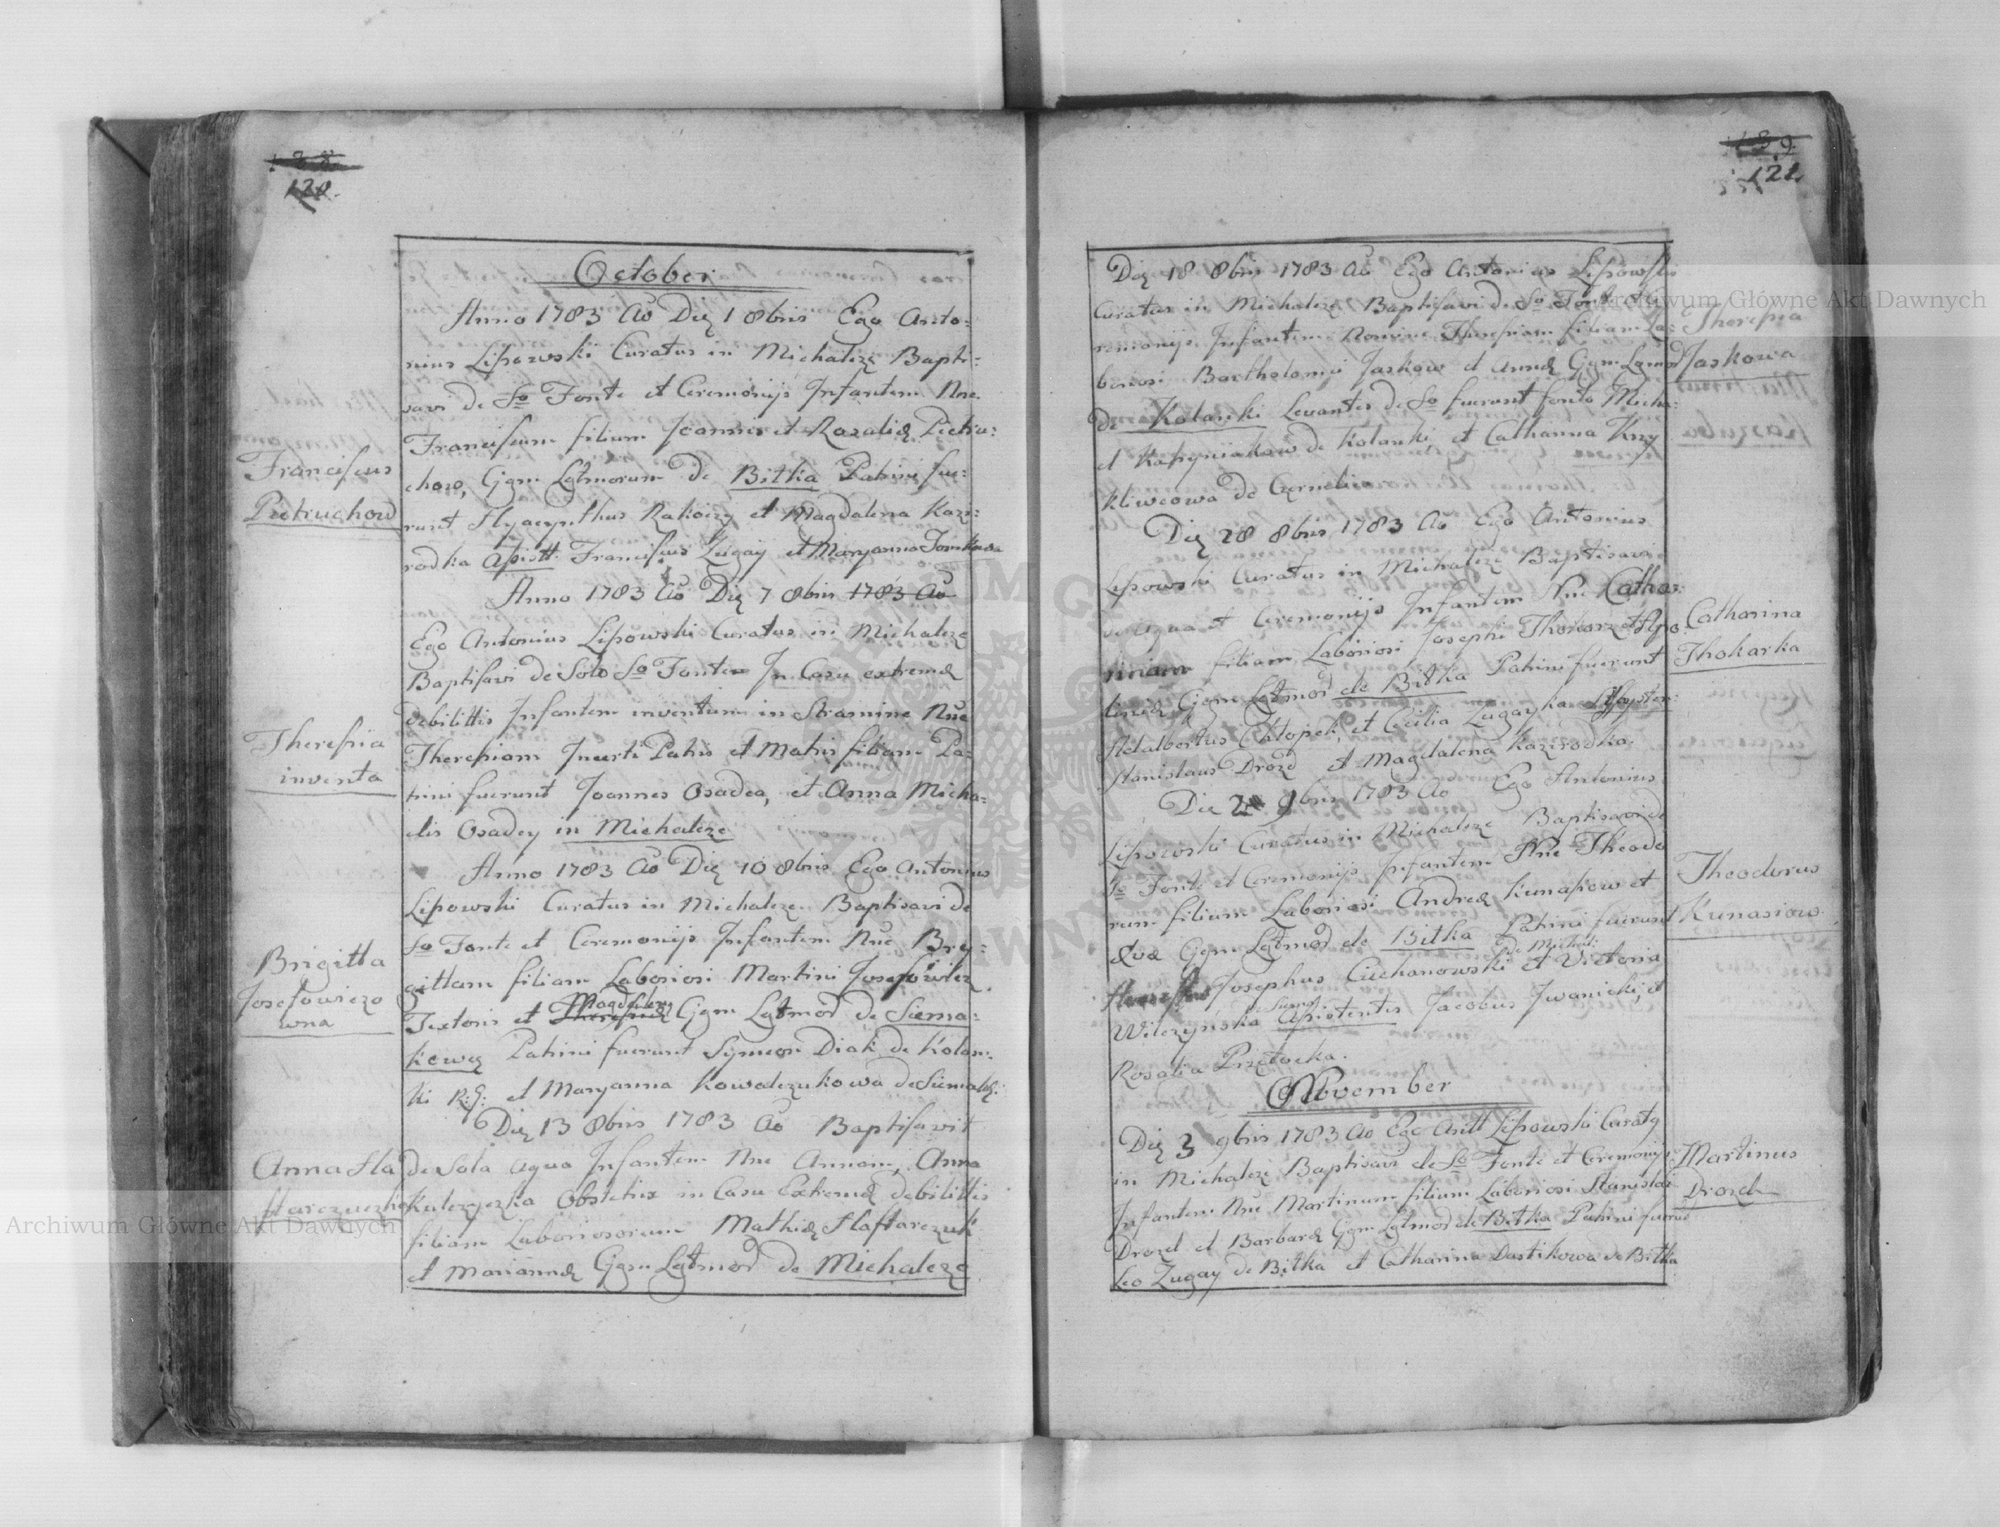 120.
October
Anno 1783 Ao Die 1 8bris Ego Anto-
nius Lipowski Curatus in Michalcze Bapti-
savi de So Fonte et Ceremoniis Infantem Nne
Franciscum filium Joannis et Rozaliæ Pietru-
chow, Gjm Lgtmorum de Bitka Patrini fue-
runt Hyacynthus Rakoczy et Magdalena Kozi-
rodka Assistt: Franciscus Zugay et Maryanna
Franciscus
Pietruchow
Anno 1783 Ao Die 7 8bris 1783 Ao
Ego Antonius Lipowski Curatus in Michalcze
Baptisavi de Solo So Fonte In Casu extremæ
debilittis Infantem inventum in Stramine Nne
Theresiam Incerti Patris et Matris filiam Pa-
trini fuerunt Joannes Osadca, et Anna Micha-
elis Osadcy in Michalcze
Theresia
inventa
Anno 1783 Ao Die 10 8bris Ego Antonius
Lipowski Curatus in Michalcze Baptisavi de
So Fonte et Ceremoniis Infantem Nne Bry-
gittam filiam Laboriosi Martini Josefowicz
Textoris et Magdalenæ Theresiæ Gjm Lgtmor de Siema-
kowce Patrini fuerunt Symeon Diak de Kolan-
ki R:G: et Maryanna Kowalczukowa de Siemak:
Brigitta
Josefowiczo
wna
Die 13 8bris 1783 Ao Baptisavit
de Sola Aqua Infantem Nne Annam, Anna
Kulczycka Obstetrix in Casu Extremæ debilittis
filiam Laboriosorum Mathiæ Haftarczuk
et Mariannæ Gjm Lgtmor de Michalcze
Anna Ha
ftarczuczka
139.
121
Die 18 8bris 1783 Ao Ego Antonius Lipowski
Curatus in Michalcze Baptisavi de So Fonte et Ce-
remoniis Infantem Nomine Theresiam filiam La-
boriosi Bartholomei Jaskow et Annæ Gjm Lgmor
de Kolanki Levantes de So fuerunt fonte Micha-
el de Kolanki, et Catharina Krzy
de Czernelica
Theresia
Jaskowa
Die 28 8bris 1783 Ao Ego Antonius
Lipowski Curatus in Michalcze Baptisavi
de Aqua et Ceremoniis Infantem Nne Catha-
rinam filiam Laboriosi Josephi Thokarz et Apo-
loniæ Gjm Lgtmor de Bitka Patrini fuerunt
Adalbertus Chlopek, et Cecilia Zugayka
Stanislaus Drozd et Magdalena Kozirodka.
Catharina
Thokarka
Die 2 9bris 1783 Ao Ego Antonius
Lipowski Curatus in Michalcze Baptisavi de
So Fonte et Ceremoniis Infantem Nne Theodo
rum filium Laboriosi Andreæ Kunasiow et
Evæ Gjm Lgtmor de Bitka Patrini fuerunt
Josephus Ciechanowski de Michal: et Victoria
Wilczynska Assistentes Jacobus Iwanicki, et
Rosalia Przetocka.
Theodorus
Kunasiow
November
Die 3 9bris 1783 Ao Ego Antt Lipowski Curatq
in Michalcze Baptisavi de So Fonte et Ceremoniis
Infantem Nne Martinum filium Laboriosi Stanislai
Drozd et Barbaræ Gjm Lgtmor de Bitka Patrini fuerunt
Leo Zugay de Bitka et Catharina Dastikowa de Bitka
Martinus
Drozd
Archiwum Główne Akt Dawnych
Archiwum Główne Akt Dawnych